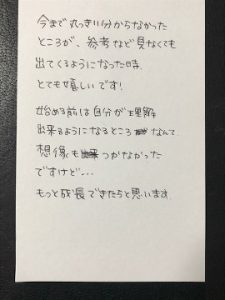 今まで丸っきり分からなかった
ところが、参考など見なくても
出てくるようになった時、
とても嬉しいです!
始める前は自分が理解
出来るようになるところなんて
想像もつかなかった
ですけど…
もっと成長できたらと思います